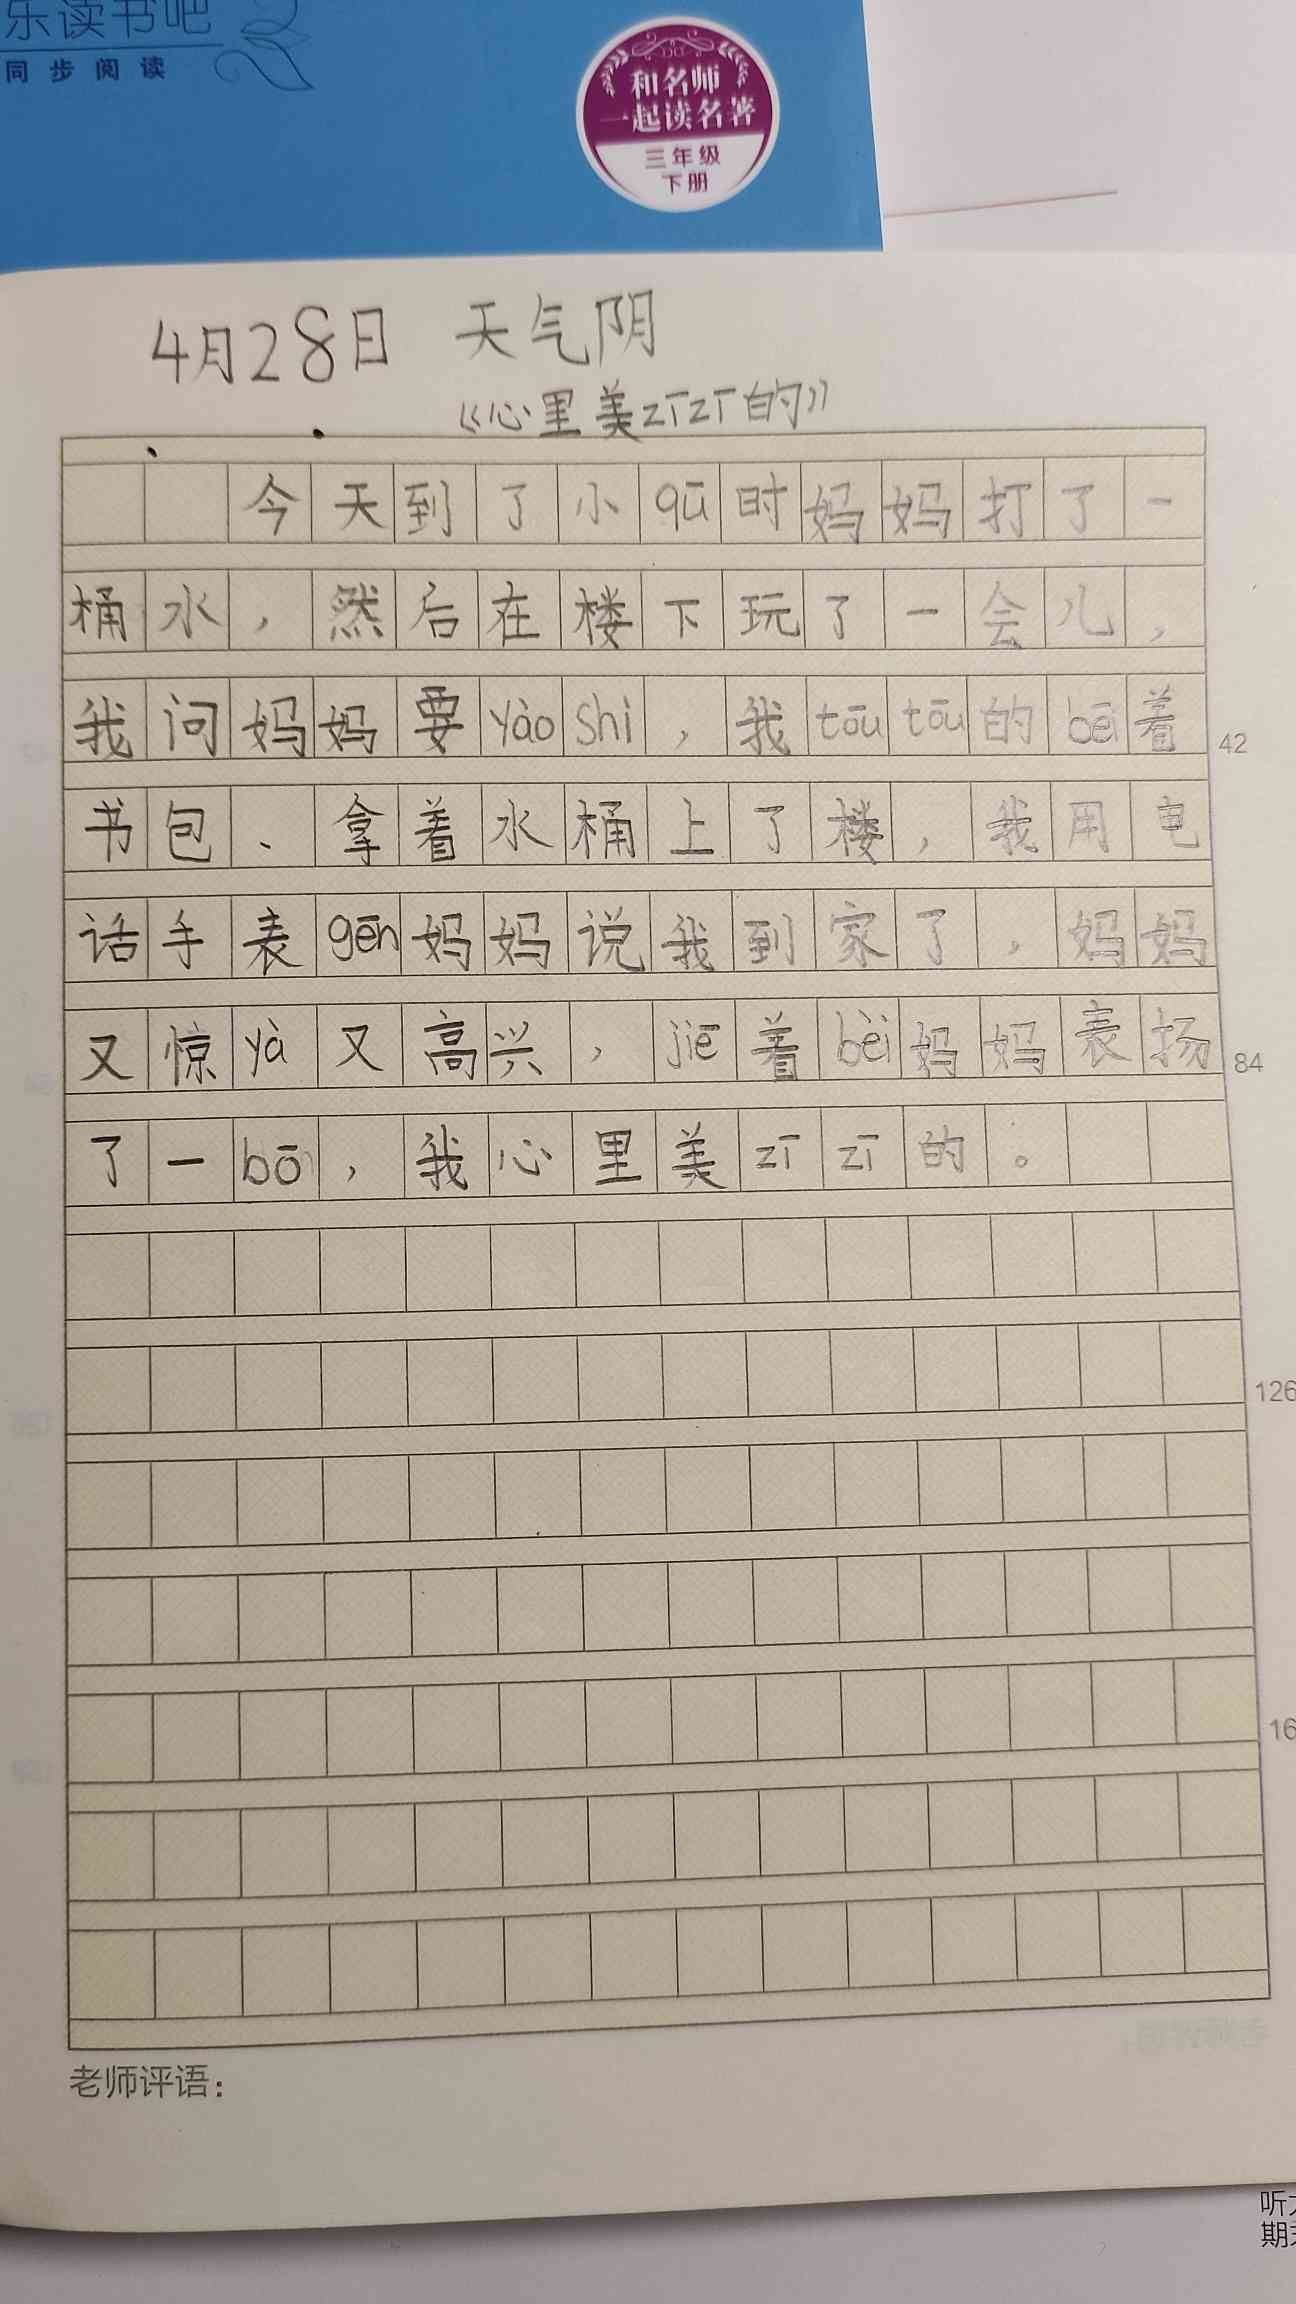 乐读书吧
同步阅读
和名师
一起读名著
三年级
下册
4月28日 天气阴
《心里美zīzī的》
今天到了小qū时妈妈打了一
桶水，然后在楼下玩了一会儿，
我问妈妈要yàoshi，我tōutōu的bēi着
42
书包、拿着水桶上了楼，我用电
话手表gēn妈妈说我到家了，妈妈
又惊yà又高兴，jiē着bèi妈妈表扬
84
了一bō，我心里美zīzī的。
126
16
老师评语：